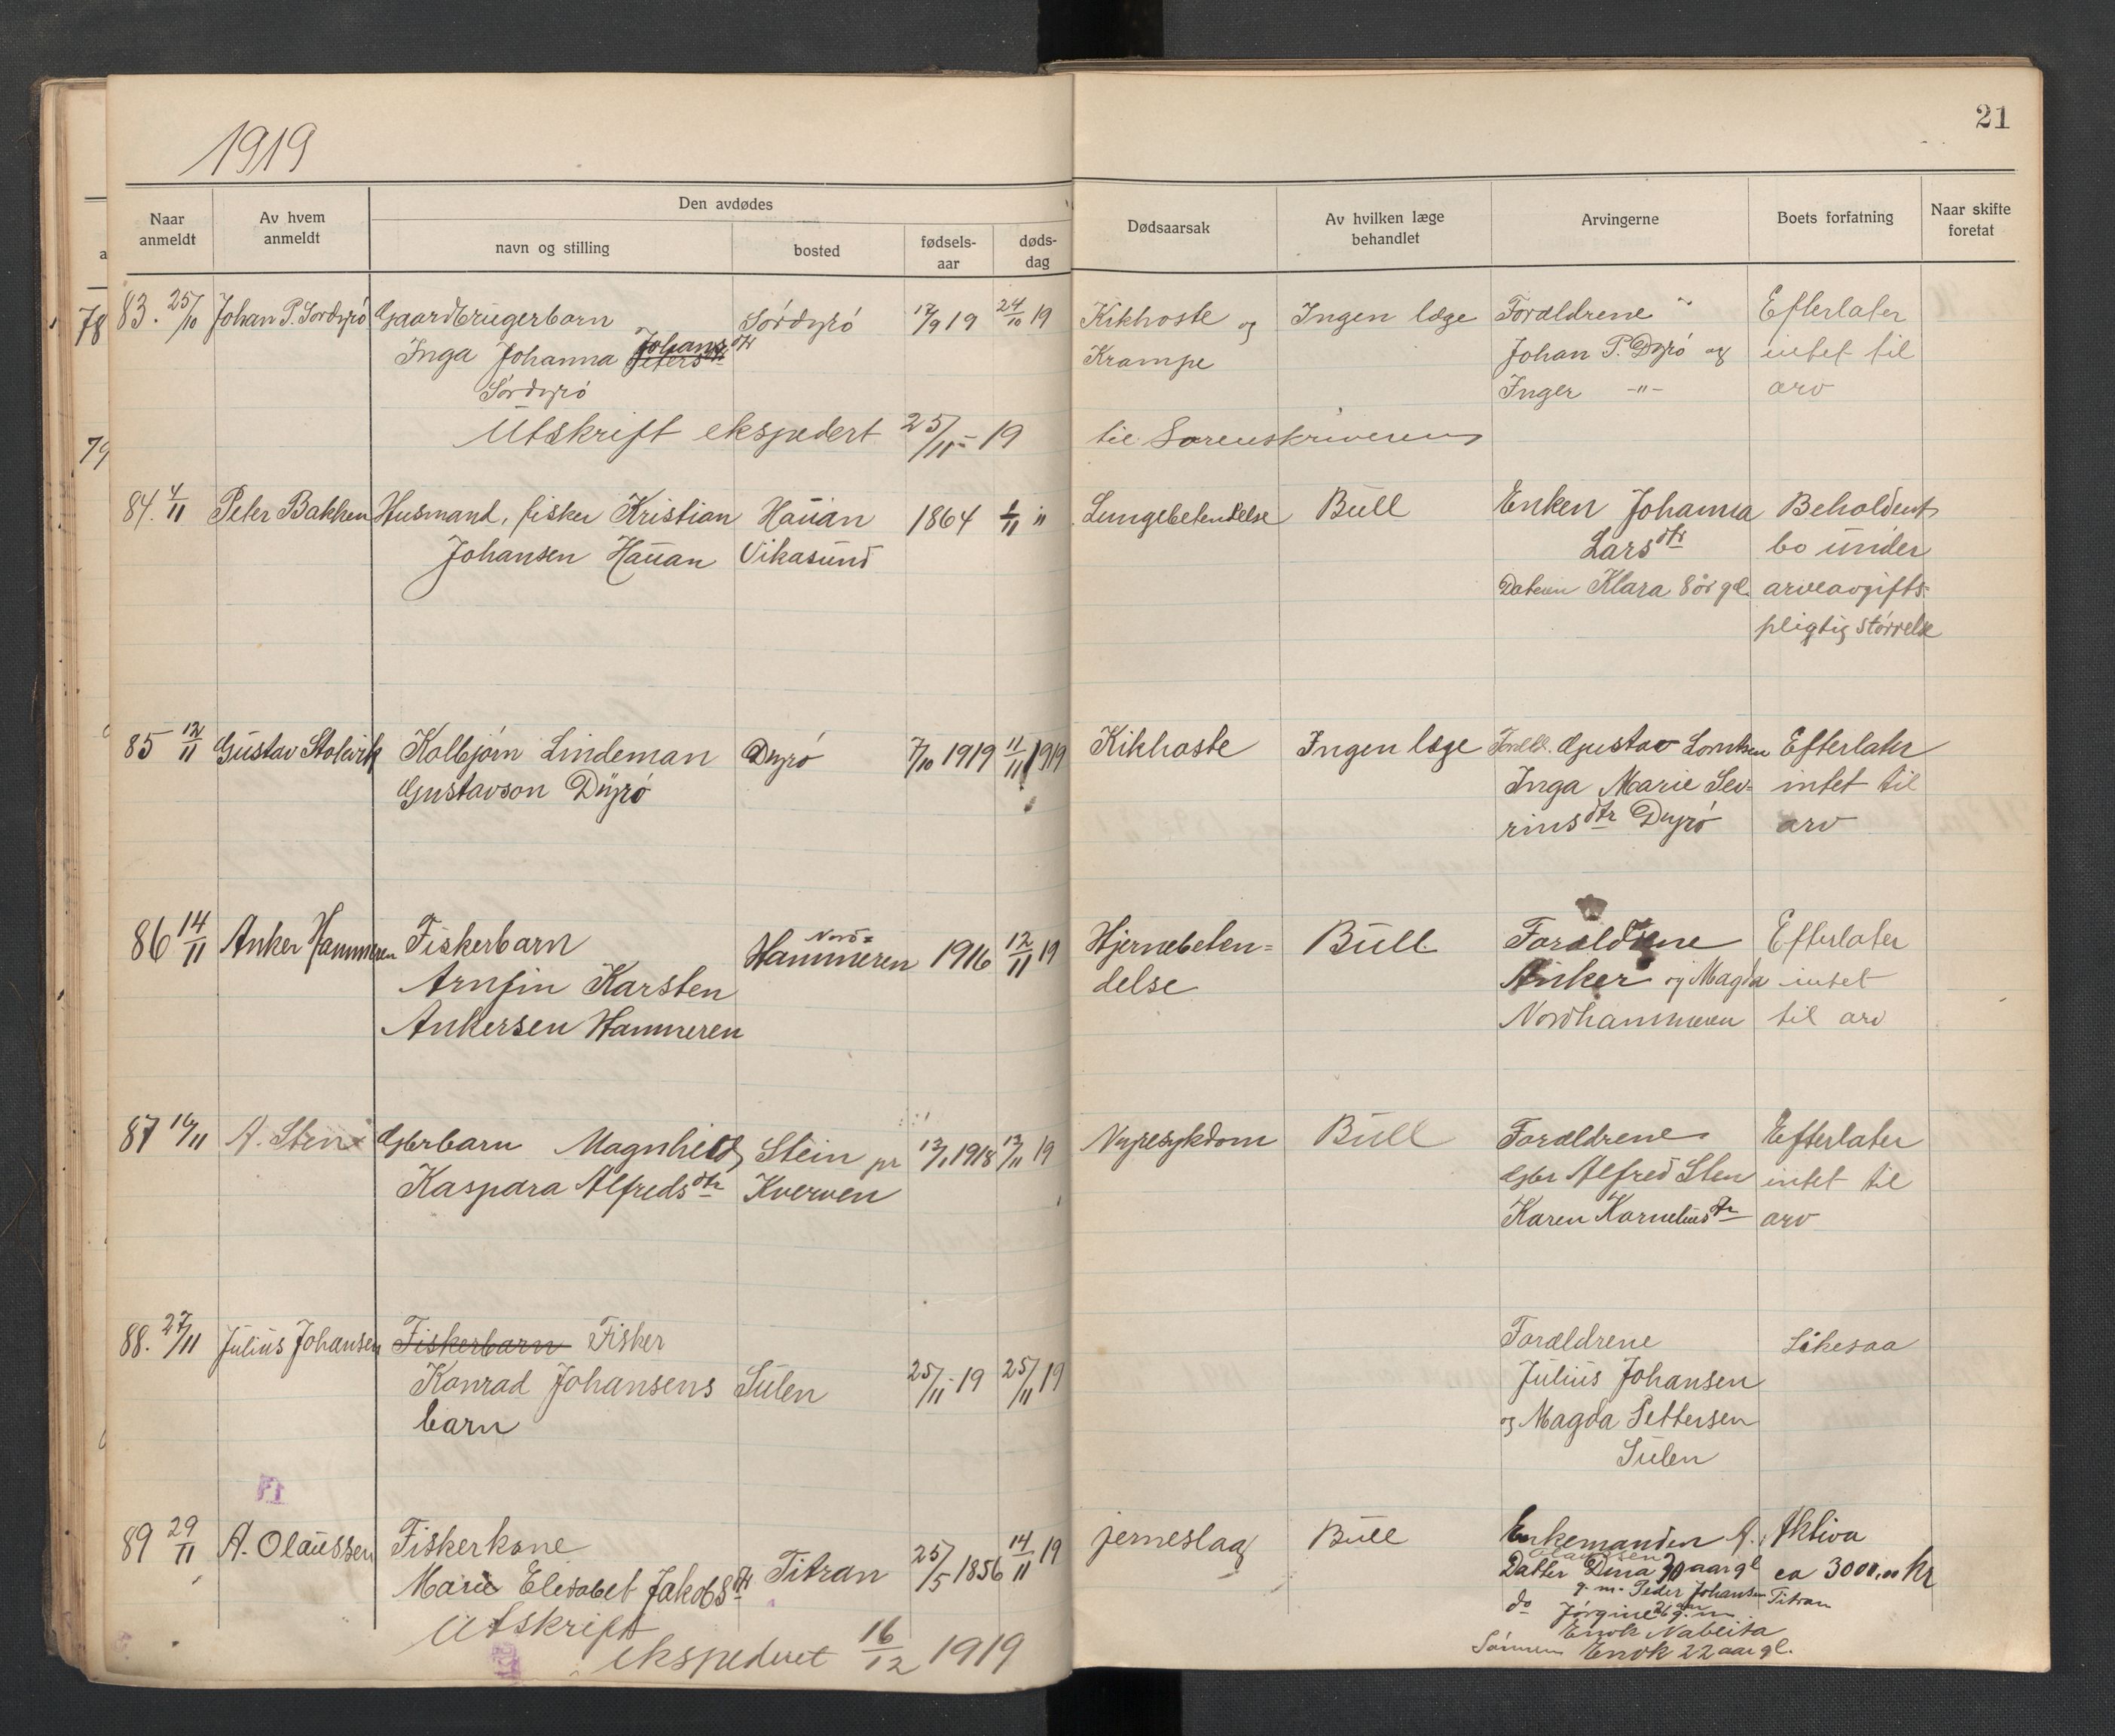 1919
21
Naar anmeldt
Av hvem anmeldt
Den avdødes
navn og stilling
bosted
fødsels-aar
døds-dag
Dødsaarsak
Av hvilken læge behandlet
Arvingerne
Boets forfatning
Naar skifte foretat
78
79
83. 25/10 Johan P. Sordyrö Gaardbrugerbarn Sördyrö 17/9 19 24/10 19 Kikhoste og Ingen læge Forældrene Efterlater
Inga Johanna Petersdtr Johansdtr Krampe Johan P. Dyrö og intet til
Sördyrö Inger -"- arv
Utskrift ekspedert 25/11 - 19 til Sorenskriveren
84. 4/11 Peter Bakken Husmand, fisker Kristian Hauan 1864 1/11 " Lungebetendelse Bull Enken Johanna Beholdent
Johansen Hauan Vikasund Larsdtr bo under
Datteren Klara 8 år gl. arveavgifts-
pligtig störrelse
85 12/11 Gustav Stolvik Kolbjörn Lindeman Dyrö 7/10 1919 11/11 1919 Kikhoste Ingen læge Foreld. Gustav Efterlater
Gustavson Dyrö Inga Marie Sev- intet til
rinsdtr Dyrö arv
86 14/11 Anker Hammeren Fiskerbarn Nord-
Hammeren 1916 12/11 19 Hjernebeten- Bull Foraldrene Efterlater
Arnfin Karsten delse Anker og Magda intet
Ankersen Hammeren Nordhammeren til arv
87 14/11 A. Sten Gbrbarn Magnhild Stein pr 12/1 1918 13/11 19 Nyresykdom Bull Forældrene Efterlater
Kaspara Alfredsdtr Kverven Gbr Alfred Sten intet til
Karen Korneliusdtr arv
88. 27/11 Julius Johansen Fiskerbarn Fisker Forældrene Likesaa
Konrad Johansens Sulen 25/11 - 19 25/11 19 Julius Johansen
barn og Magda Pettersen
Sulen
89 29/11 A. Olaussen Fiskerkone Titran 25/5 1856 14/11 19 jerneslag Bull Enkemanden A. Aktiva
Olaussen
Marie Elisabet Jakobsdtr Datter Dina 30 aar gl ca 3000,00 kr
g. m. Peder Johansen Titran
do Jörgine 26 aar g. m
Utskrift Enok Nabeita
ekspedert 16/12 1919 Sönnen Enok 22 aar gl.